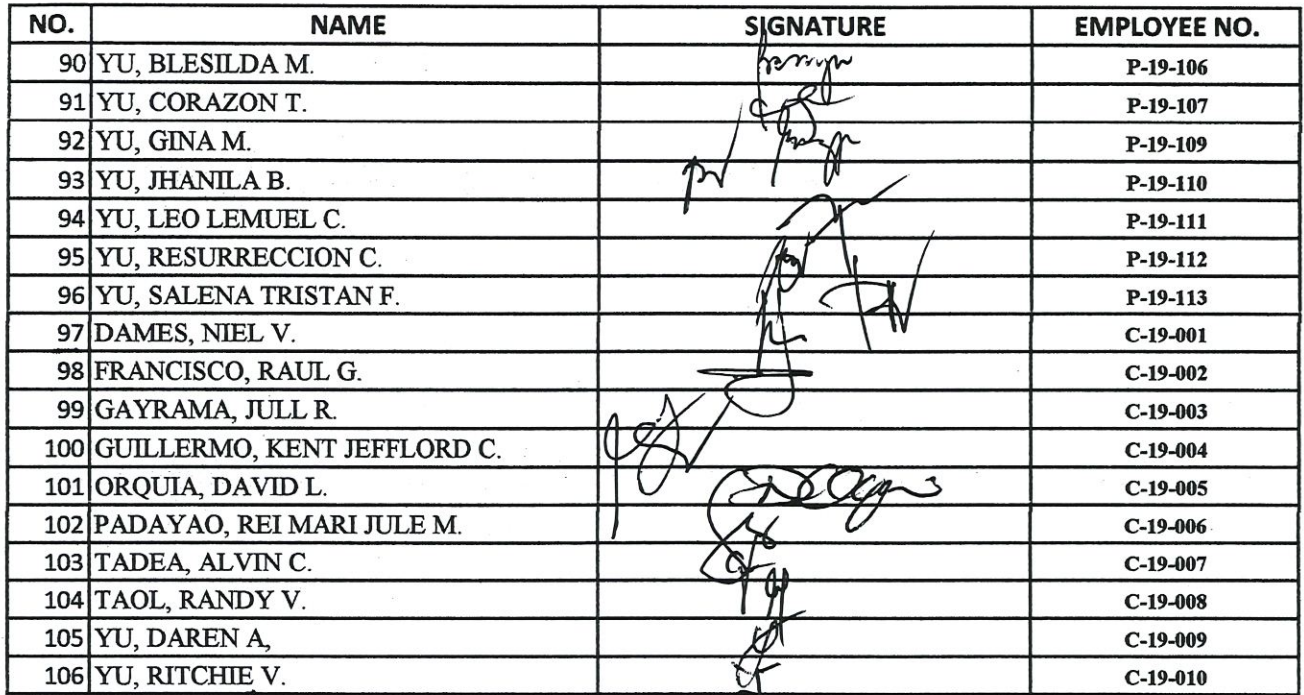 NO. NAME SIGNATURE EMPLOYEE NO.
90 YU, BLESILDA M. P-19-106
91 YU, CORAZON T. P-19-107
92 YU, GINA M. P-19-109
93 YU, JHANILA B. P-19-110
94 YU, LEO LEMUEL C. P-19-111
95 YU, RESURRECCION C. P-19-112
96 YU, SALENA TRISTAN F. P-19-113
97 DAMES, NIEL V. C-19-001
98 FRANCISCO, RAUL G. C-19-002
99 GAYRAMA, JULL R. C-19-003
100 GUILLERMO, KENT JEFFLORD C. C-19-004
101 ORQUIA, DAVID L. C-19-005
102 PADAYAO, REI MARI JULE M. C-19-006
103 TADEA, ALVIN C. C-19-007
104 TAOL, RANDY V. C-19-008
105 YU, DAREN A, C-19-009
106 YU, RITCHIE V. C-19-010